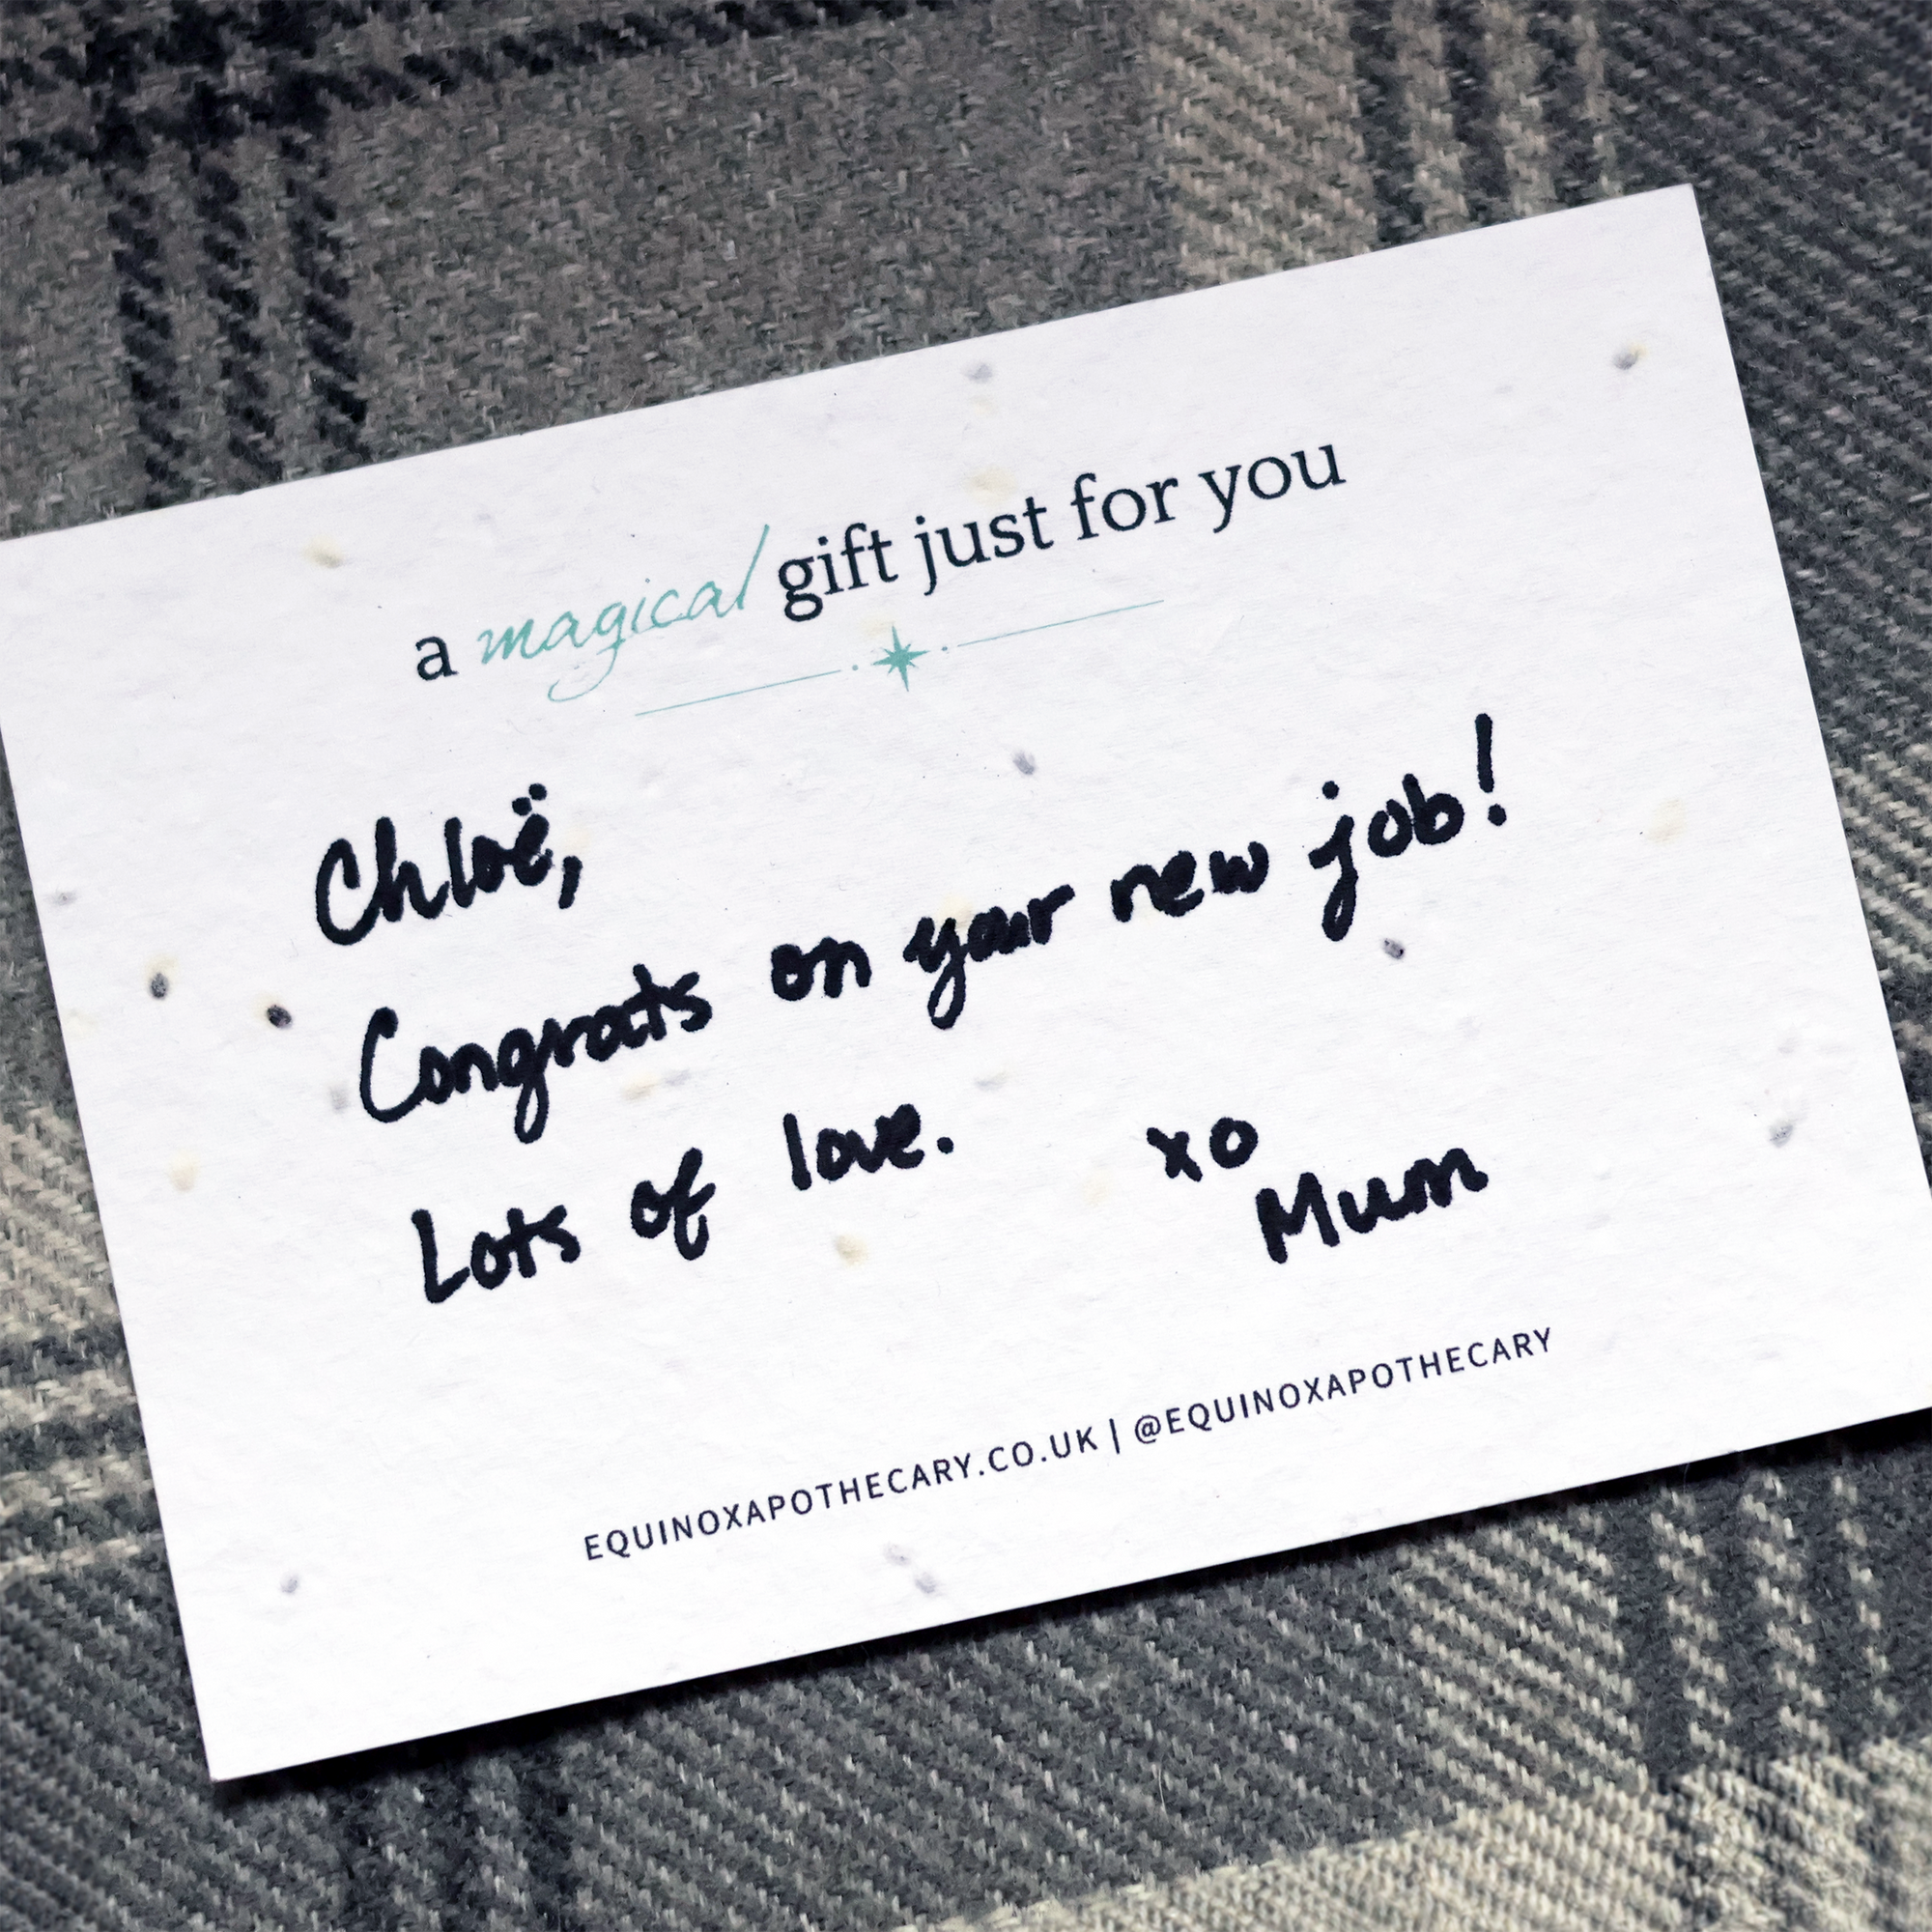 a magical gift just for you
Chloë,
Congrats on your new job!
Lots of love.
xo
Mum
EQUINOXAPOTHECARY.CO.UK | @EQUINOXAPOTHECARY